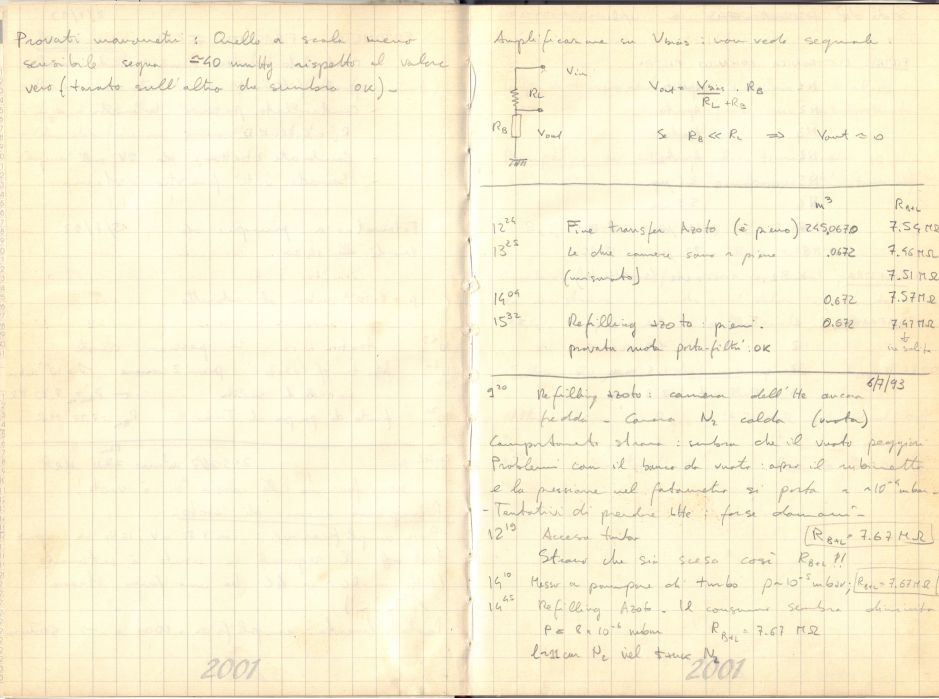 Provati manometri : Quello a scala meno
sensibile segna ≃40 mmHg rispetto al valore
vero (tarato sull'altro che sembra OK) -
2001
Amplificazione su Vbias : non vedo segnale.
Vin
RL
RB
Vout
Vout = Vbias / (RL + RB) · RB
Se RB << RL ⇒ Vout ≈ 0
m³ RB+L
12²⁴ Fine transfer Azoto (è pieno) 245,0670 7.54 MΩ
13²⁵ Le due camere sono piene .0672 7.46 MΩ
(misurato) 7.51 MΩ
14⁰⁹ 0.672 7.57 MΩ
15³² Refilling azoto : pieni. 0.672 7.47 MΩ
provata ruota porta-filtri : OK
6/7/93
9²⁰ Refilling azoto : camera dell'He ancora
fredda - Camera N₂ calda (vuota)
strano : sembra che il vuoto peggiori
Problemi con il banco da vuoto : apro il rubinetto
e la pressione nel si porta a ~10⁻⁴ mbar -
- Tentativi di prendere LHe : forse domani -
12¹⁹ Acceso turbo RB+L = 7.67 MΩ
Strano che sia scesa così RB+L ?!
14¹⁰ Messo a pompare di turbo p~10⁻⁵ mbar; RB+L = 7.67 MΩ
14⁴⁵ Refilling Azoto. Il consumo sembra diminuito
P = 8 × 10⁻⁶ mbar RB+L = 7.67 MΩ
N₂ nel tank N₂
2001